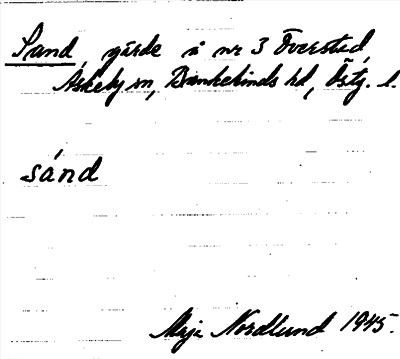 Sand, gärde å nr 3 Överstad,
Askeby sn, Bankekinds hd, Östg. l.
sánd
Maja Nordlund 1945.